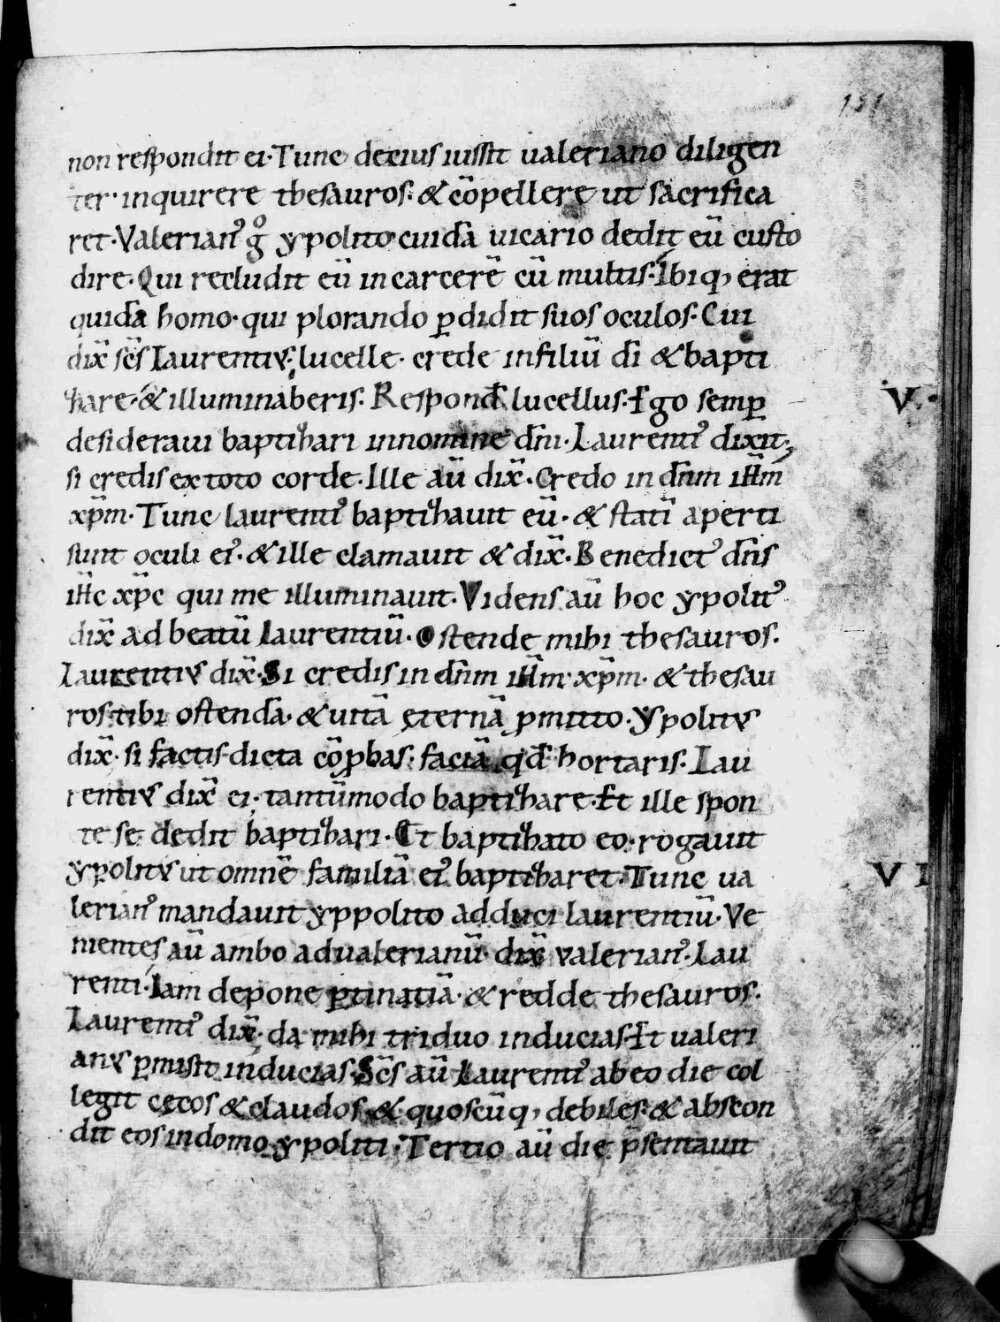 151
non respondit ei· Tunc decius iussit ualeriano diligen
ter· inquirere thesauros· & cōpellere ut sacrifica
ret· Valerian᾿ gͦ ypolito cuidā uicario dedit eū custo
dire· Qui recludit eū in carcerē cū multis· Ibiq; erat
quidā homo· qui plorando ꝑdidit suos oculos· Cui
dix̄ sc̄s Laurentiꝰ· lucelle· crede in filiū dī & bapti
zare· & illuminaberis· Respond̄ lucellus· Ego semꝑ
V·
desideraui baptizari in nomine dn̄i· Laurenti᾿ dixit;
si credis ex toto corde· Ille aū dix̄· Credo in dn̄m ihm̄
xp̄m· Tunc laurenti᾿ baptizauit eū· & statī aperti
sunt oculi ei᾿· & ille clamauit & dix̄· Benedict᾿ dn̄s
ihc̄ xp̄c qui me illuminauit· Videns aū hoc ypolit᾿
dix̄ ad beatū Laurentiū· Ostende mihi thesauros·
Laurentiꝰ dix̄· Si credis in dn̄m ihm̄ xp̄m· & thesau
ros tibi ostendā· & uitā ęternā ꝓmitto· Ypolitꝰ
dix̄· si factis dicta cōꝓbas· faciā qd̄ hortaris· Lau
rentiꝰ dix̄ ei· tantūmodo baptizare· Et ille spon
te se dedit baptizari· Et baptizato eo· rogauit
ypolitꝰ ut omnē familiā ei᾿ baptizaret· Tunc ua
VI
lerian᾿ mandauit yppolito adduci laurentiū· Ve
nientes aū ambo ad ualerianū· dix̄ valerian᾿· Lau
renti· Iam depone ꝑtinatiā· & redde thesauros·
Laurenti᾿ dix̄· da mihi triduo inducias· Et ualeri
anꝰ ꝑmisit inducias· Sc̄s aū Laurenti᾿ ab eo die col
legit cęcos & claudos & quoscūq; debiles· & abscon
dit eos in domo ypoliti· Tertio aū die p̄sentauit